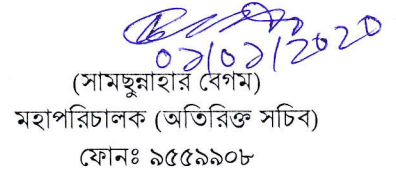 ০১/০১/2020
(সামছুন্নাহার বেগম)
মহাপরিচালক (অতিরিক্ত সচিব)
ফোনঃ ৯৫৫৯৯০৮